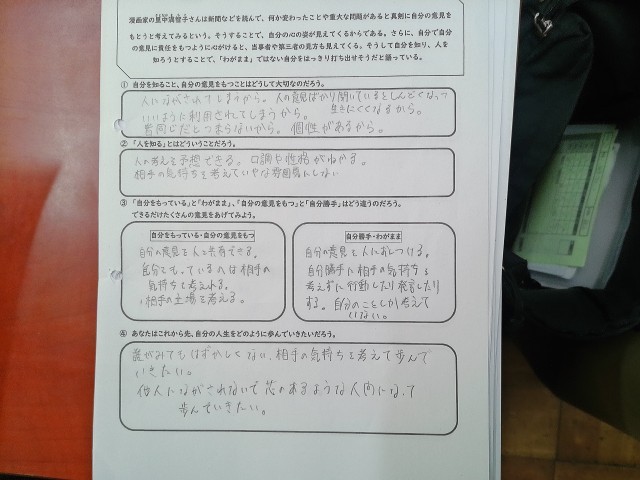 漫画家の里中満智子さんは新聞などを読んで、何か変わったことや重大な問題があると真剣に自分の意見を
もとうと考えてみるという。そうすることで、自分の心の姿が見えてくるからである。さらに、自分で自分
の意見に責任をもつように心がけると、当事者や第三者の見方も見えてくる。そうして自分を知り、人を
知ろうとすることで、「わがまま」ではない自分をはっきり打ち出せそうだと語っている。
① 自分を知ること、自分の意見をもつことはどうして大切なのだろう。
人にながされてしまうから。人の意見ばかり聞いているとしんどくなって
いいように利用されてしまうから。 生きにくくなるから。
皆同じだとつまらないから。個性があるから。
② 「人を知る」とはどういうことだろう。
人の考えを予想できる。口調や性格がわかる。
相手の気持ちを考えていやな雰囲気にしない
③ 「自分をもっている」と「わがまま」、「自分の意見をもつ」と「自分勝手」はどう違うのだろう。
できるだけたくさんの意見をあげてみよう。
自分をもっている・自分の意見をもつ
自分の意見を人と共有できる。
自分をもっている人は相手の
気持ちも考えれる。
相手の立場も考える。
自分勝手・わがまま
自分の意見を人におしつける。
自分勝手に相手の気持ちを
考えずに行動したり発言したり
する。自分のことしか考えて
いない。
④ あなたはこれから先、自分の人生をどのように歩んでいきたいだろう。
誰がみてもはずかしくない、相手の気持ちを考えて歩んで
いきたい。
他人にながされないで芯のあるような人間になって
歩んでいきたい。